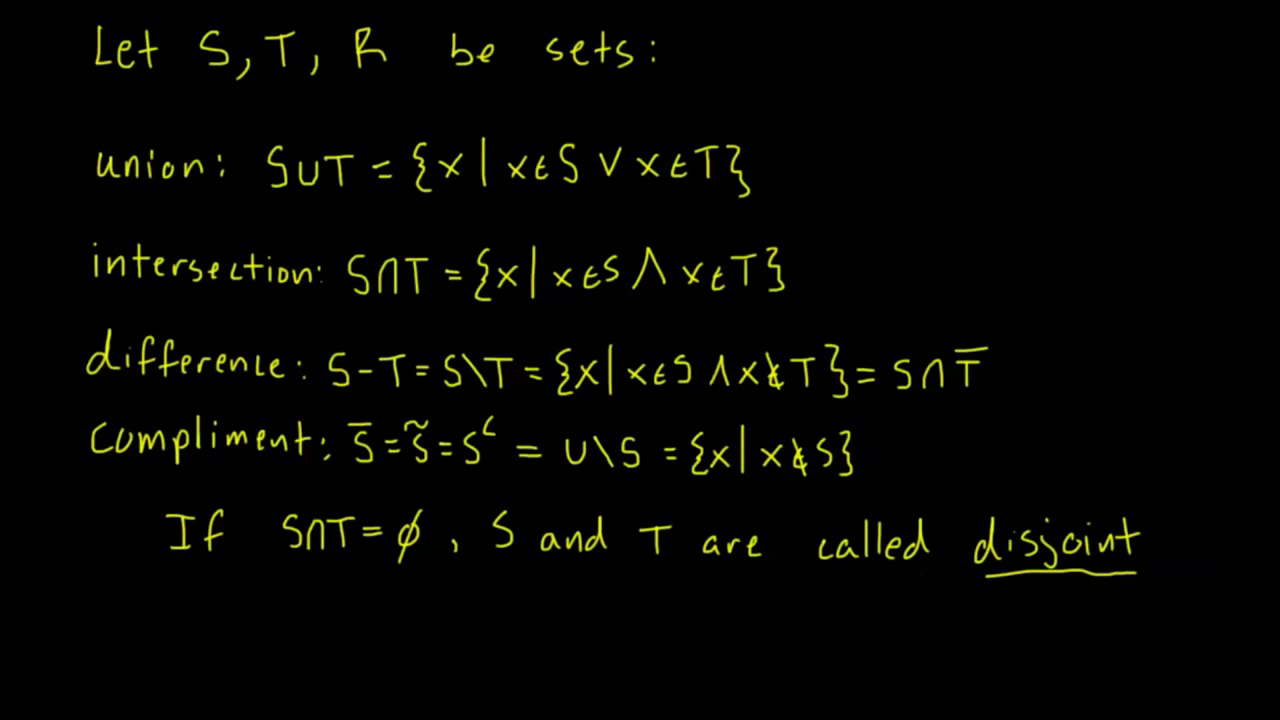 Let S, T, R be sets:
union: S∪T = {x | x∈S ∨ x∈T}
intersection: S∩T = {x | x∈S ∧ x∈T}
difference: S-T = S\T = {x | x∈S ∧ x∉T} = S∩T̅
Compliment: S̅ = S̃ = Sᶜ = U\S = {x | x∉S}
If S∩T = ∅, S and T are called disjoint